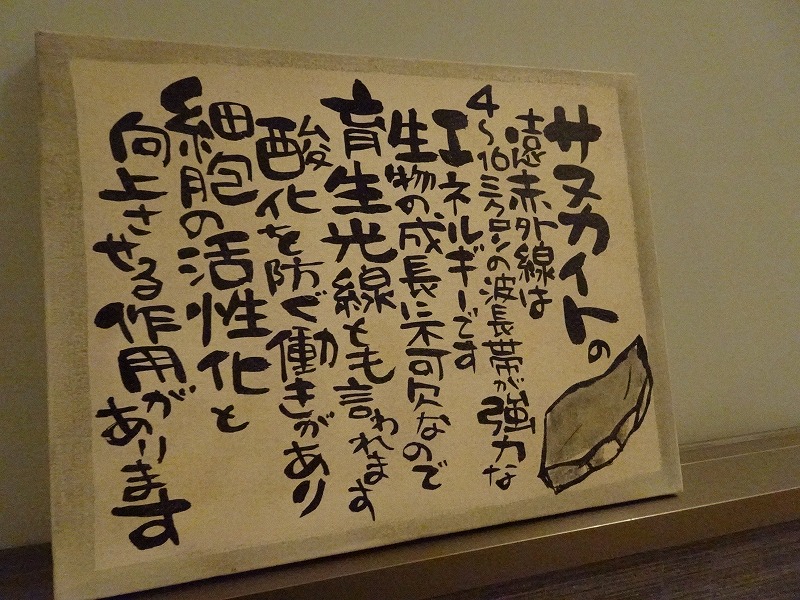 サヌカイトの
遠赤外線は
4〜10ミクロンの波長帯が強力な
エネルギーです
生物の、成長に不可欠なので
育生光線とも言われます
酸化を防ぐ働きがあり
細胞の活性化と
向上させる作用があります